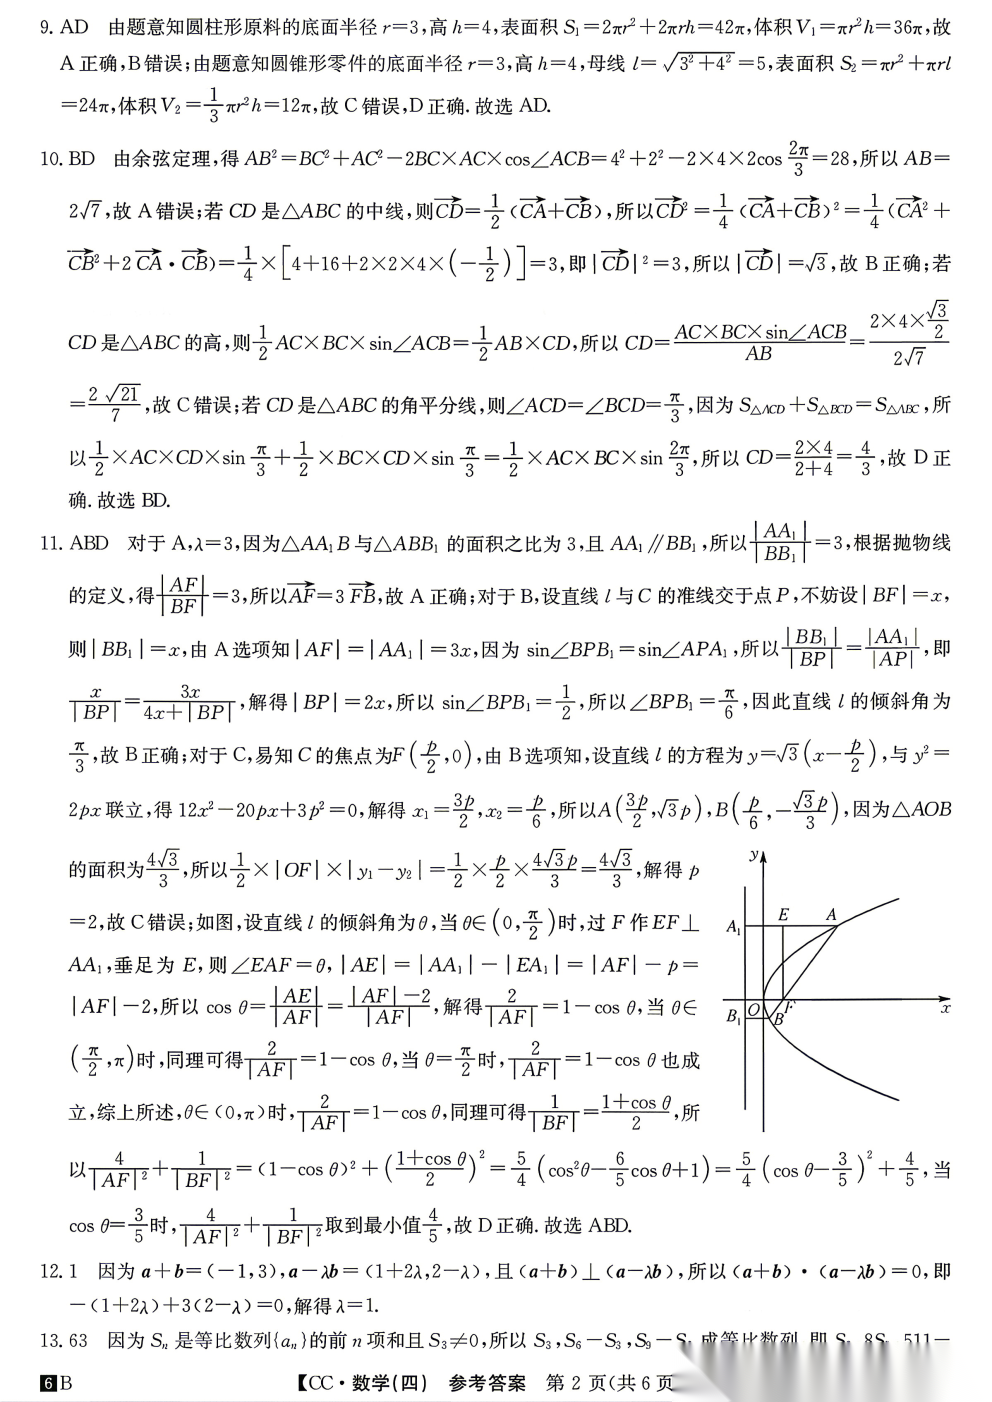 9. AD　由题意知圆柱形原料的底面半径 r=3,高 h=4,表面积 S₁=2πr²+2πrh=42π,体积 V₁=πr²h=36π,故
A 正确,B 错误;由题意知圆锥形零件的底面半径 r=3,高 h=4,母线 l=√(3²+4²)=5,表面积 S₂=πr²+πrl
=24π,体积 V₂=1/3πr²h=12π,故 C 错误,D 正确. 故选 AD.
10. BD　由余弦定理,得 AB²=BC²+AC²−2BC×AC×cos∠ACB=4²+2²−2×4×2cos 2π/3=28,所以 AB=
2√7,故 A 错误;若 CD 是△ABC 的中线,则CD→=1/2(CA→+CB→),所以CD→²=1/4(CA→+CB→)²=1/4(CA→²+
CB→²+2CA→·CB→)=1/4×[4+16+2×2×4×(−1/2)]=3,即|CD→|²=3,所以|CD→|=√3,故 B 正确;若
CD 是△ABC 的高,则1/2AC×BC×sin∠ACB=1/2AB×CD,所以 CD=(AC×BC×sin∠ACB)/AB=(2×4×√3/2)/(2√7)
=2√21/7,故 C 错误;若 CD 是△ABC 的角平分线,则∠ACD=∠BCD=π/3,因为 S△ACD+S△BCD=S△ABC,所
以1/2×AC×CD×sin π/3+1/2×BC×CD×sin π/3=1/2×AC×BC×sin 2π/3,所以 CD=(2×4)/(2+4)=4/3,故 D 正
确. 故选 BD.
11. ABD　对于 A,λ=3,因为△AA₁B 与△ABB₁ 的面积之比为 3,且 AA₁∥BB₁,所以|AA₁|/|BB₁|=3,根据抛物线
的定义,得|AF|/|BF|=3,所以AF→=3FB→,故 A 正确;对于 B,设直线 l 与 C 的准线交于点 P,不妨设|BF|=x,
则|BB₁|=x,由 A 选项知|AF|=|AA₁|=3x,因为 sin∠BPB₁=sin∠APA₁,所以|BB₁|/|BP|=|AA₁|/|AP|,即
x/|BP|=3x/(4x+|BP|),解得|BP|=2x,所以 sin∠BPB₁=1/2,所以∠BPB₁=π/6,因此直线 l 的倾斜角为
π/3,故 B 正确;对于 C,易知 C 的焦点为F(p/2,0),由 B 选项知,设直线 l 的方程为 y=√3(x−p/2),与 y²=
2px 联立,得 12x²−20px+3p²=0,解得 x₁=3p/2,x₂=p/6,所以A(3p/2,√3p),B(p/6,−√3p/3),因为△AOB
的面积为4√3/3,所以1/2×|OF|×|y₁−y₂|=1/2×p/2×4√3p/3=4√3/3,解得 p
=2,故 C 错误;如图,设直线 l 的倾斜角为 θ,当 θ∈(0,π/2)时,过 F 作 EF⊥
AA₁,垂足为 E,则∠EAF=θ,|AE|=|AA₁|−|EA₁|=|AF|−p=
|AF|−2,所以 cos θ=|AE|/|AF|=(|AF|−2)/|AF|,解得2/|AF|=1−cos θ,当 θ∈
(π/2,π)时,同理可得2/|AF|=1−cos θ,当 θ=π/2时,2/|AF|=1−cos θ 也成
立,综上所述,θ∈(0,π)时,2/|AF|=1−cos θ,同理可得1/|BF|=(1+cos θ)/2,所
以4/|AF|²+1/|BF|²=(1−cos θ)²+((1+cos θ)/2)²=5/4(cos²θ−6/5cos θ+1)=5/4(cos θ−3/5)²+4/5,当
cos θ=3/5时,4/|AF|²+1/|BF|²取到最小值4/5,故 D 正确. 故选 ABD.
y
E
A
A₁
O
F
B₁
B
x
12. 1　因为 a+b=(−1,3),a−λb=(1+2λ,2−λ),且(a+b)⊥(a−λb),所以(a+b)·(a−λb)=0,即
−(1+2λ)+3(2−λ)=0,解得 λ=1.
13. 63　因为 Sₙ 是等比数列{aₙ}的前 n 项和且 S₃≠0,所以 S₃,S₆−S₃,S₉−S₆ 成等比数列,即
6 B
【CC·数学(四)　参考答案　第 2 页(共 6 页